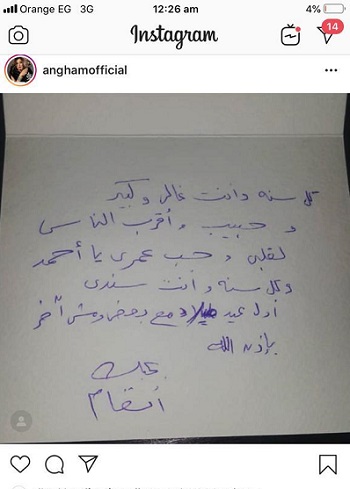 Orange EG 3G 12:26 am 4%
Instagram 14
anghamofficial
كل سنه وأنت غالى وكبير
وحبيب وأقرب الناس
لقلبى وحب عمرى يا أحمد
وكل سنه وأنت سندى
أول عيد ميلاد مع بعض ومش آخر
بإذن الله
بحبك
أنغام